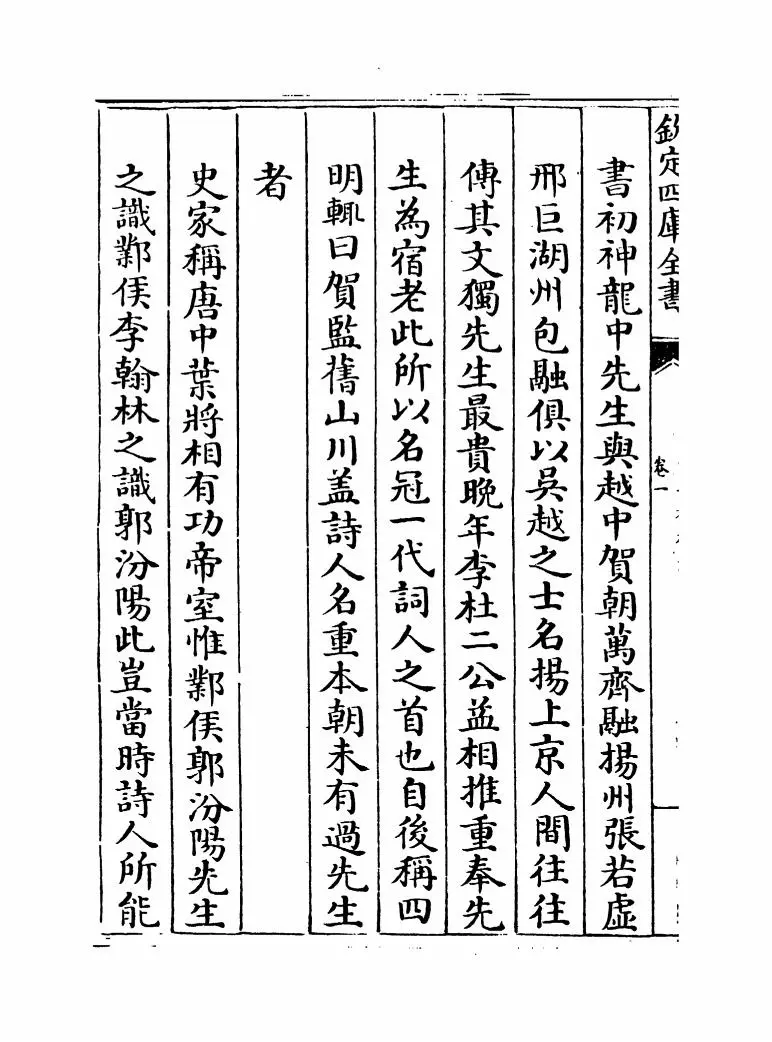 欽定四庫全書
卷一
書初神龍中先生與越中賀朝萬齊融揚州張若虛
邢巨湖州包融俱以吳越之士名揚上京人間往往
傳其文獨先生最貴晚年李杜二公益相推重奉先
生為宿老此所以名冠一代詞人之首也自後稱四
明輙曰賀監舊山川盖詩人名重本朝未有過先生
者
史家稱唐中葉將相有功帝室惟鄴侯郭汾陽先生
之識鄴侯李翰林之識郭汾陽此豈當時詩人所能